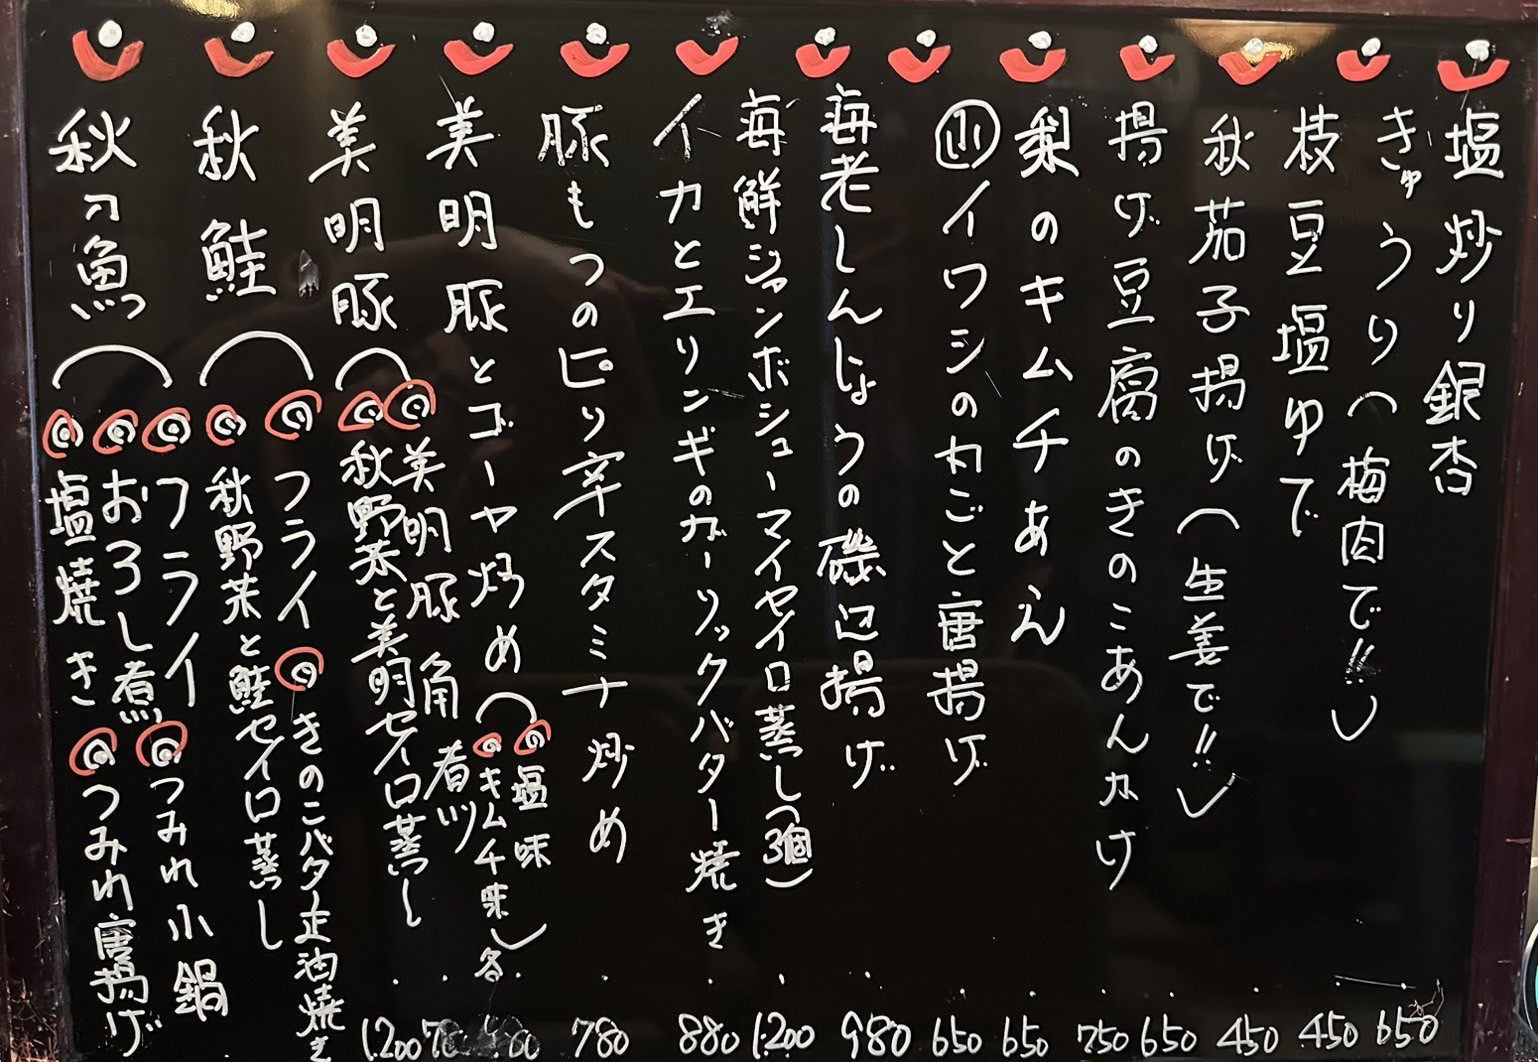 塩炒り銀杏 650
きゅうり（梅肉で!!） 450
枝豆塩ゆで 450
秋茄子揚げ（生姜で!!） 650
揚げ豆腐のきのこあんかけ 750
梨のキムチあえ 650
イワシのカごと唐揚げ 650
海老しんじょうの磯辺揚げ 980
海鮮ジャンボシューマイセイロ蒸し（3個） 1200
イカとエリンギのガーリックバター焼き 880
豚もつのピリ辛スタミナ炒め 780
美明豚とゴーヤ炒め（塩味
キムチ味）各
美明豚（美明豚角煮
秋野菜と美明セイロ蒸し 1200
秋鮭（フライ きのこバター正油焼き
秋野菜と鮭セイロ蒸し
秋刀魚（フライ つみれ小鍋
おろし煮
塩焼き つみれ唐揚げ